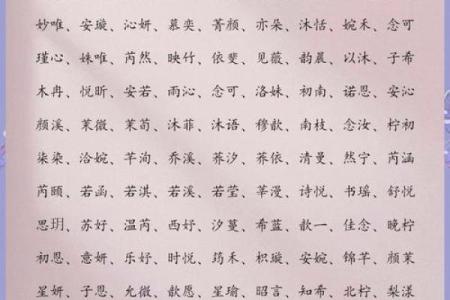 妙唯、安璇、沁妍、慕奕、菁颜、亦朵、沐恬、婉禾、念可
瑾心、姝唯、芮然、映竹、依斐、见薇、韵晨、以沐、子希
木冉、悦昕、安若、雨沁、念可、洛妹、初南、诺恩、安沁
颜溪、茉微、茉茹、沐菲、沐语、穆歆、南枝、念汝、柠初
柒染、洽婉、芊洵、乔溪、荞汐、荞依、清曼、然宁、芮涵
芮颐、若函、若淇、若溪、若莹、莘漫、诗悦、书瑶、舒悦
思玥、苏好、温芮、西妤、汐蔓、希蓝、歆一、佳念、晚柠
初恩、意妍、乐妤、时悦、筠禾、枳璇、安婉、锦芊、颜茉
星妍、子恩、允微、歆愿、星瑜、昭言、知希、北柠、梨漾